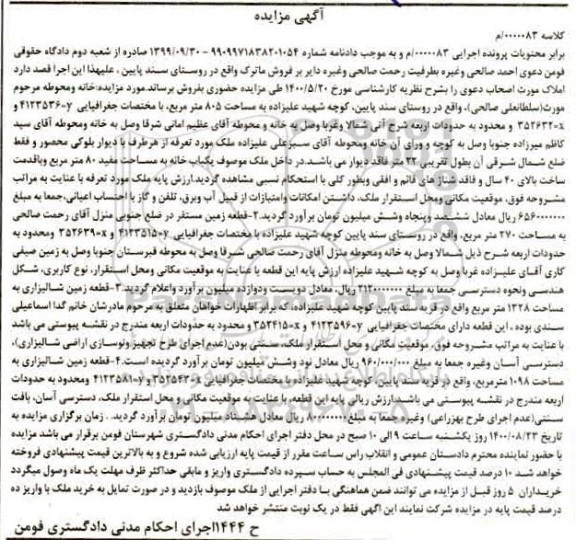 آگهی مزایده
کلاسه ۰۰۰۰۰۸۳/م
برابر محتویات پرونده اجرایی ۰۰۰۰۰۸۳/م و به موجب دادنامه شماره ۹۹۰۹۹۷۱۸۳۸۲۰۱۰۵۴ - ۱۳۹۹/۰۹/۳۰ صادره از شعبه دوم دادگاه حقوقی
فومن دعوی احمد صالحی وغیره بطرفیت رحمت صالحی وغیره دایر بر فروش ماترک واقع در روستای سند پایین ، علیهذا این اجرا قصد دارد
املاک مورث اصحاب دعوی را بشرح نظریه کارشناسی مورخ ۱۴۰۰/۵/۲۰ طی مزایده حضوری بفروش برساند.مورد مزایده:خانه ومحوطه مرحوم
مورث(سلطانعلی صالحی)، واقع در روستای سند پایین، کوچه شهید علیزاده به مساحت ۸۰۵ متر مربع، با مختصات جغرافیایی ۴۱۲۳۵۳۶۰=y و
۳۵۲۶۳۲=x و محدود به حدودات اربعه شرح آتی شمالا وغربا وصل به خانه و محوطه آقای عظیم امانی شرقا وصل به خانه ومحوطه آقای سید
کاظم میرزاده جنوبا وصل به کوچه و ورای آن خانه ومحوطه آقای سبزعلی علیزاده ملک مورد تعرفه از هرطرف با دیوار بلوکی محصور و فقط
ضلع شمال شرقی آن بطول تقریبی ۲۲ متر فاقد دیوار می باشد.در داخل ملک موصوف یکباب خانه به مساحت مفید ۸۰ متر مربع وباقدمت
ساخت بالای ۴۰ سال و فاقد شناژهای قائم و افقی وبطور کلی با استحکام نسبی مشاهده گردید.ارزش پایه ملک مورد تعرفه با عنایت به مراتب
مشروحه فوق، موقعیت مکانی ومحل استقرار ملک، داشتن امکانات وامتیازات از قبیل آب وبرق، تلفن و گاز با احتساب اعیانی،جمعا به مبلغ
۶۵۶۰۰۰۰۰۰۰ ریال معادل ششصد وپنجاه وشش میلیون تومان برآورد گردید.۲-قطعه زمین مستقر در ضلع جنوبی منزل آقای رحمت صالحی
به مساحت ۲۷۰ متر مربع، واقع در روستای سند پایین کوچه شهید علیزاده با مختصات جغرافیایی ۴۱۲۳۵۱۵۰=y و ۳۵۲۶۳۹۰=x ومحدود به
حدودات اربعه شرح ذیل شمالا وصل به خانه ومحوطه منزل آقای رحمت صالحی شرقا وصل به محوطه قبرستان جنوبا وصل به زمین صیفی
کاری آقای علیزاده غربا وصل به کوچه شهید علیزاده ارزش پایه این قطعه با عنایت به موقعیت مکانی ومحل استقرار، نوع کاربری، شکل
هندسی ونحوه دسترسی جمعا به مبلغ ۲۱۲۰۰۰۰۰۰۰ ریال، معادل دویست ودوازده میلیون برآورد واعلام گردید.۳-قطعه زمین شالیزاری به
مساحت ۱۳۲۸ متر مربع واقع در قریه سند پایین کوچه شهید علیزاده، که برابر اظهارات خواهان متعلق به مرحوم مادرشان خانم گدا اسماعیلی
سندی بوده . این قطعه دارای مختصات جغرافیایی ۴۱۲۳۵۹۶۰=y و ۳۵۲۴۱۵۰=x و محدود به حدودات اربعه مندرج در نقشه پیوستی می باشد
با عنایت به مراتب مشروحه فوق، موقعیت مکانی و محل استقرار ملک،سنتی بودن(عدم اجرای طرح تجهیز ونوسازی اراضی شالیزاری)،
دسترسی آسان وغیره جمعا به مبلغ ۹۶۰/۰۰۰/۰۰۰ ریال معادل نود وشش میلیون تومان برآورد گردیده است.۴-قطعه زمین شالیزاری به
مساحت ۱۰۹۸ مترمربع، واقع در قریه سند پایین، کوچه شهید علیزاده با مختصات جغرافیایی ۳۵۲۵۴۳۰=x و ۴۱۲۳۵۸۱۰=y ومحدود به حدودات
اربعه مندرج در نقشه پیوستی می باشد.ارزش ریالی پایه این قطعه، با عنایت به موقعیت مکانی و محل استقرار ملک، دسترسی آسان، بافت
سنتی(عدم اجرای طرح بهزراعی) وغیره جمعا به مبلغ ۸۰۰۰۰۰۰۰۰ ریال معادل هشتاد میلیون تومان برآورد گردید. . زمان برگزاری مزایده به
تاریخ ۱۴۰۰/۰۸/۲۳ روز یکشنبه ساعت ۹ الی ۱۰ صبح در محل دفتر اجرای احکام مدنی دادگستری شهرستان فومن برقرار می باشد مزایده
با حضور نماینده محترم دادستان عمومی و انقلاب راس ساعت مقرر از قیمت پایه ارزیابی شده شروع و به بالاترین قیمت پیشنهادی فروخته
خواهد شد ۱۰ درصد قیمت پیشنهادی فی المجلس به حساب سپرده دادگستری واریز و مابقی حداکثر ظرف مهلت یک ماه وصول میگردد
خریداران ۵ روز قبل از مزایده می توانند ضمن هماهنگی با دفتر اجرایی از ملک موصوف بازدید و در صورت تمایل به خرید ملک با واریز ده
درصد قیمت پایه در مزایده شرکت نمایند این اگهی فقط در یک نوبت منتشر خواهد شد
ح ۱۴۴۴ اجرای احکام مدنی دادگستری فومن